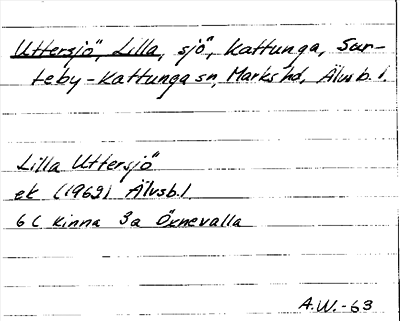 Uttersjö, Lilla, sjö, Kattunga, Sur-
teby-Kattunga sn, Marks hd, Älvsb. l.
Lilla Uttersjö
ek (1969) Älvsb. l
6 C Kinna 3 a Öxnevalla
A.W.-63